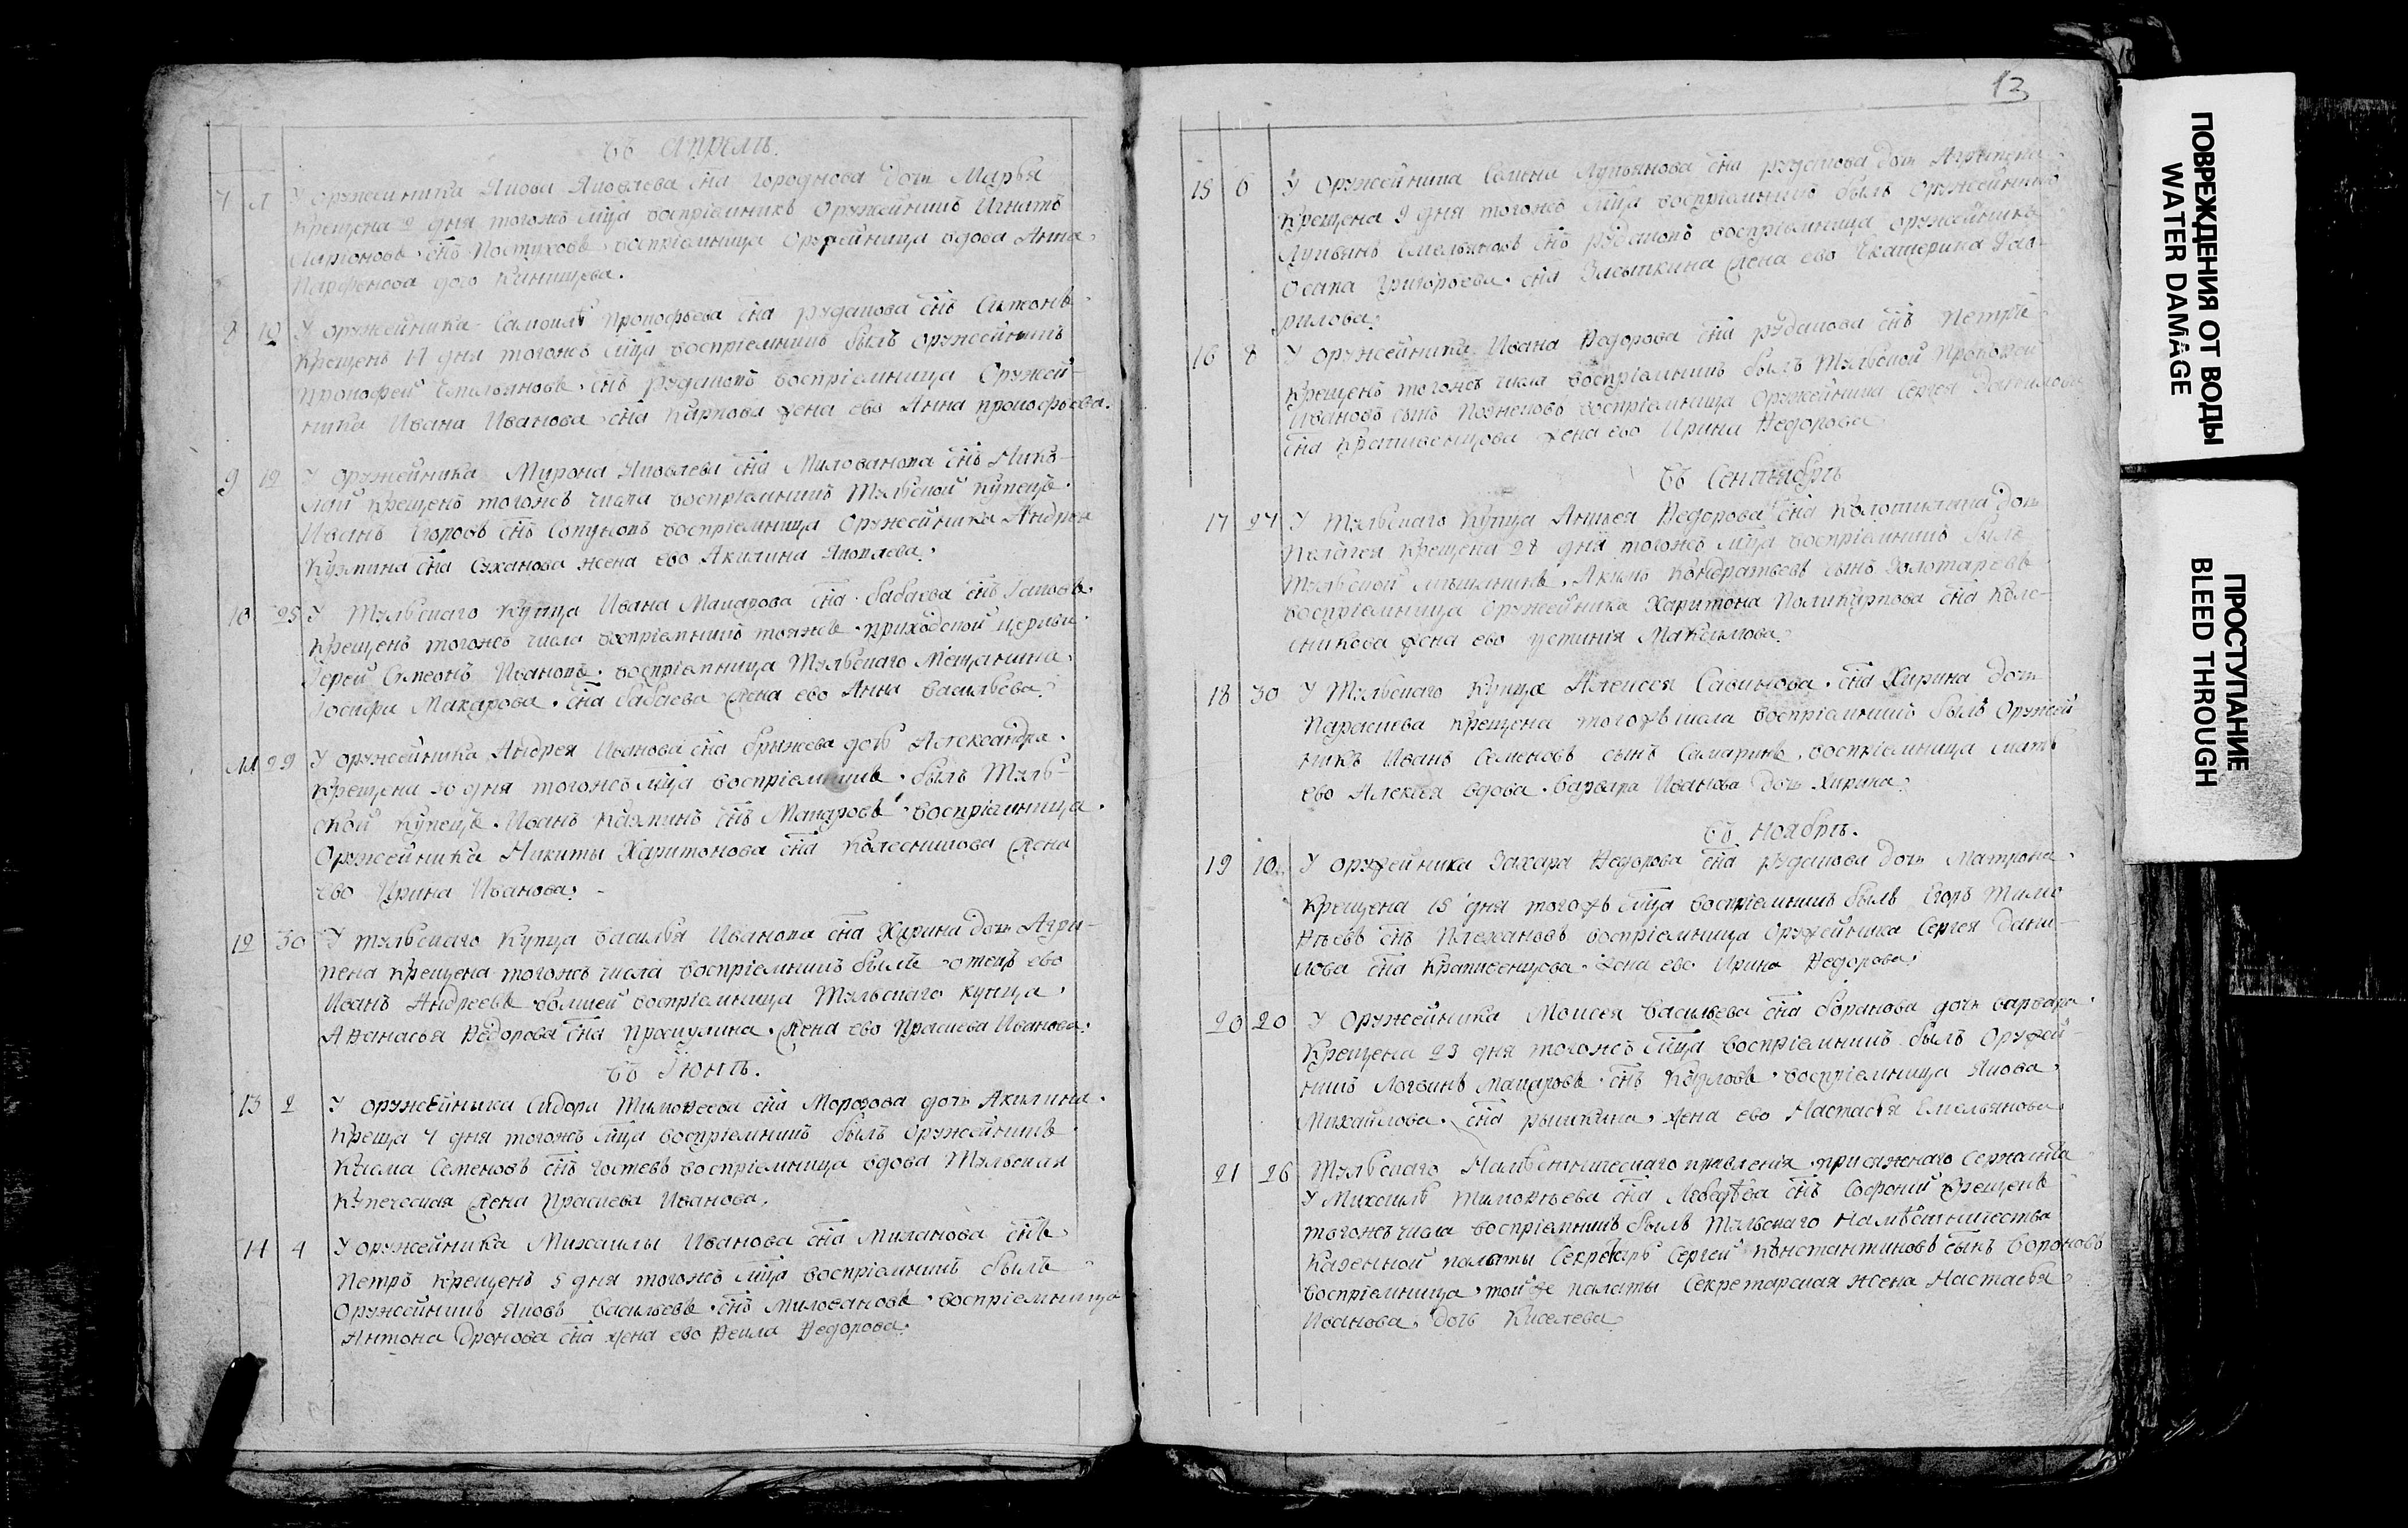 13
Въ Апрелѣ.
7 1 У оружейника Якова Яковлева сна Городнова дочь Марья
крещена 2 дня тогожъ мца восприемникъ оружейникъ Игнатъ
Ларионовъ снъ Пастуховъ восприемница оружейница вдова Анна
Парфенова дочь
8 10 У оружейника Самоила Прокофьева сна Рудакова снъ Антонъ
крещенъ 17 дня тогожъ мца восприемникъ былъ оружейникъ
Прокофей Емельяновъ снъ Рудаковъ восприемница Оружей-
ника Ивана Иванова сна Карпова жена ево Анна Прокофьева.
9 12 У оружейника Мирона Яковлева сна Милованова снъ Нико-
лай крещенъ тогожъ числа восприемникъ Тульской купецъ
Иванъ Егоровъ снъ Сопуновъ восприемница Оружейника Андрея
Кузмина сна Суханова жена ево Акилина Яковлева.
10 25 У Тульскаго купца Ивана Макарова сна Бабаева снъ Иаковъ
крещенъ тогожъ числа восприемникъ тояжъ приходской церкви
Иерей Симеонъ Ивановъ. восприемница Тульскаго Мещанина
Иосифа Макарова сна Бабаева жена ево Анна Васильева.
11 29 У оружейника Андрея Иванова сна Брыжева дочь Александра
крещена 30 дня тогожъ мца восприемникъ былъ Туль-
ской купецъ Иванъ Кузминъ снъ Макаровъ восприемница
Оружейника Никиты Харитонова сна Колесникова жена
ево Ирина Иванова.
12 30 У тульскаго купца Василья Иванова сна Хирина дочь Агри-
пена крещена тогожъ числа восприемникъ былъ отецъ ево
Иванъ Андреевъ восприемница Тульскаго купца
Аѳанасья Ѳедорова сна жена ево Прасковья Иванова.
Въ Июнѣ.
13 2 У оружейника Сидора Тимоѳеева сна Морозова дочь Акилина
креща 7 дня тогожъ мца восприемникъ былъ Оружейникъ
Козма Семеновъ снъ Гостевъ восприемница вдова Тульская
купеческая жена Праскева Иванова.
14 4 У оружейника Михаилы Иванова сна Миланова снъ
Петръ крещенъ 5 дня тогожъ мца восприемникъ былъ
Оружейникъ Яковъ Васильевъ снъ Миловановъ восприемница
Антона Дронова сна жена ево Ѳекла Ѳедорова.
15 6 У Оружейника Семена Лукьянова сна Рудакова дочь Агрипена
крещена 9 дня тогожъ мца восприемникъ былъ Оружейникъ
Лукьянъ Емельяновъ снъ Рудаковъ восприемница оружейника
Осипа Григорьева сна жена ево Екатерина Гав-
рилова.
16 8 У оружейника Ивана Ѳедорова сна Рудакова снъ Петръ
крещенъ тогожъ числа восприемникъ былъ Тульской
Ивановъ сынъ восприемница Оружейника Сергея Данилова
сна Крапивенцова жена ево Ирина Ѳедорова
Въ Сентябрѣ
17 27 У Тульскаго купца Ѳедорова сна дочь
Пелагея крещена 28 дня тогожъ мца восприемникъ былъ
Тульской мещанинъ Акимъ Кондратьевъ сынъ Золотаревъ
восприемница Оружейника Харитона Поликарпова сна Коле-
сникова жена ево Устинiя Максимова.
18 30 У Тульскаго купца Алексея Савинова сна Хирина дочь
Параскева крещена тогожъ числа восприемникъ былъ Оружей
никъ Иванъ Семеновъ сынъ Самаринъ восприемница мать
ево Алексея вдова Варвара Иванова дочь Хирина.
Въ ноябрѣ.
19 10 У оружейника Захара Ѳедорова сна Рудакова дочь Матрона
крещена 15 дня тогожъ мца восприемникъ былъ Егоръ Тимо
ѳѣевъ снъ Плехановъ восприемница Оружейника Сергея Дани
лова сна Крапивенцова жена ево Ирина Ѳедорова.
20 20 У Оружейника Моисея Васильева сна Баранова дочь варвара
крещена 23 дня тогожъ мца восприемникъ былъ Оружей
никъ Логвинъ Макаровъ снъ Козловъ восприемница Якова
Михайлова сна Рышкина жена ево Настасья Емельянова
21 26 Тульскаго Намѣстническаго правленiя присяжнаго сержанта
У Михаила Тимоѳѣева сна Лебедѣва снъ Софронiй крещенъ
тогожъ числа восприемникъ былъ Тульскаго Намѣстничества
Казенной палаты Секретарь Сергей Константиновъ сынъ Вороновъ
восприемница той же палаты Секретарская жена Настасья
Иванова дочь Киселева
ПОВРЕЖДЕНИЯ ОТ ВОДЫ
WATER DAMAGE
ПРОСТУПАНИЕ
BLEED THROUGH